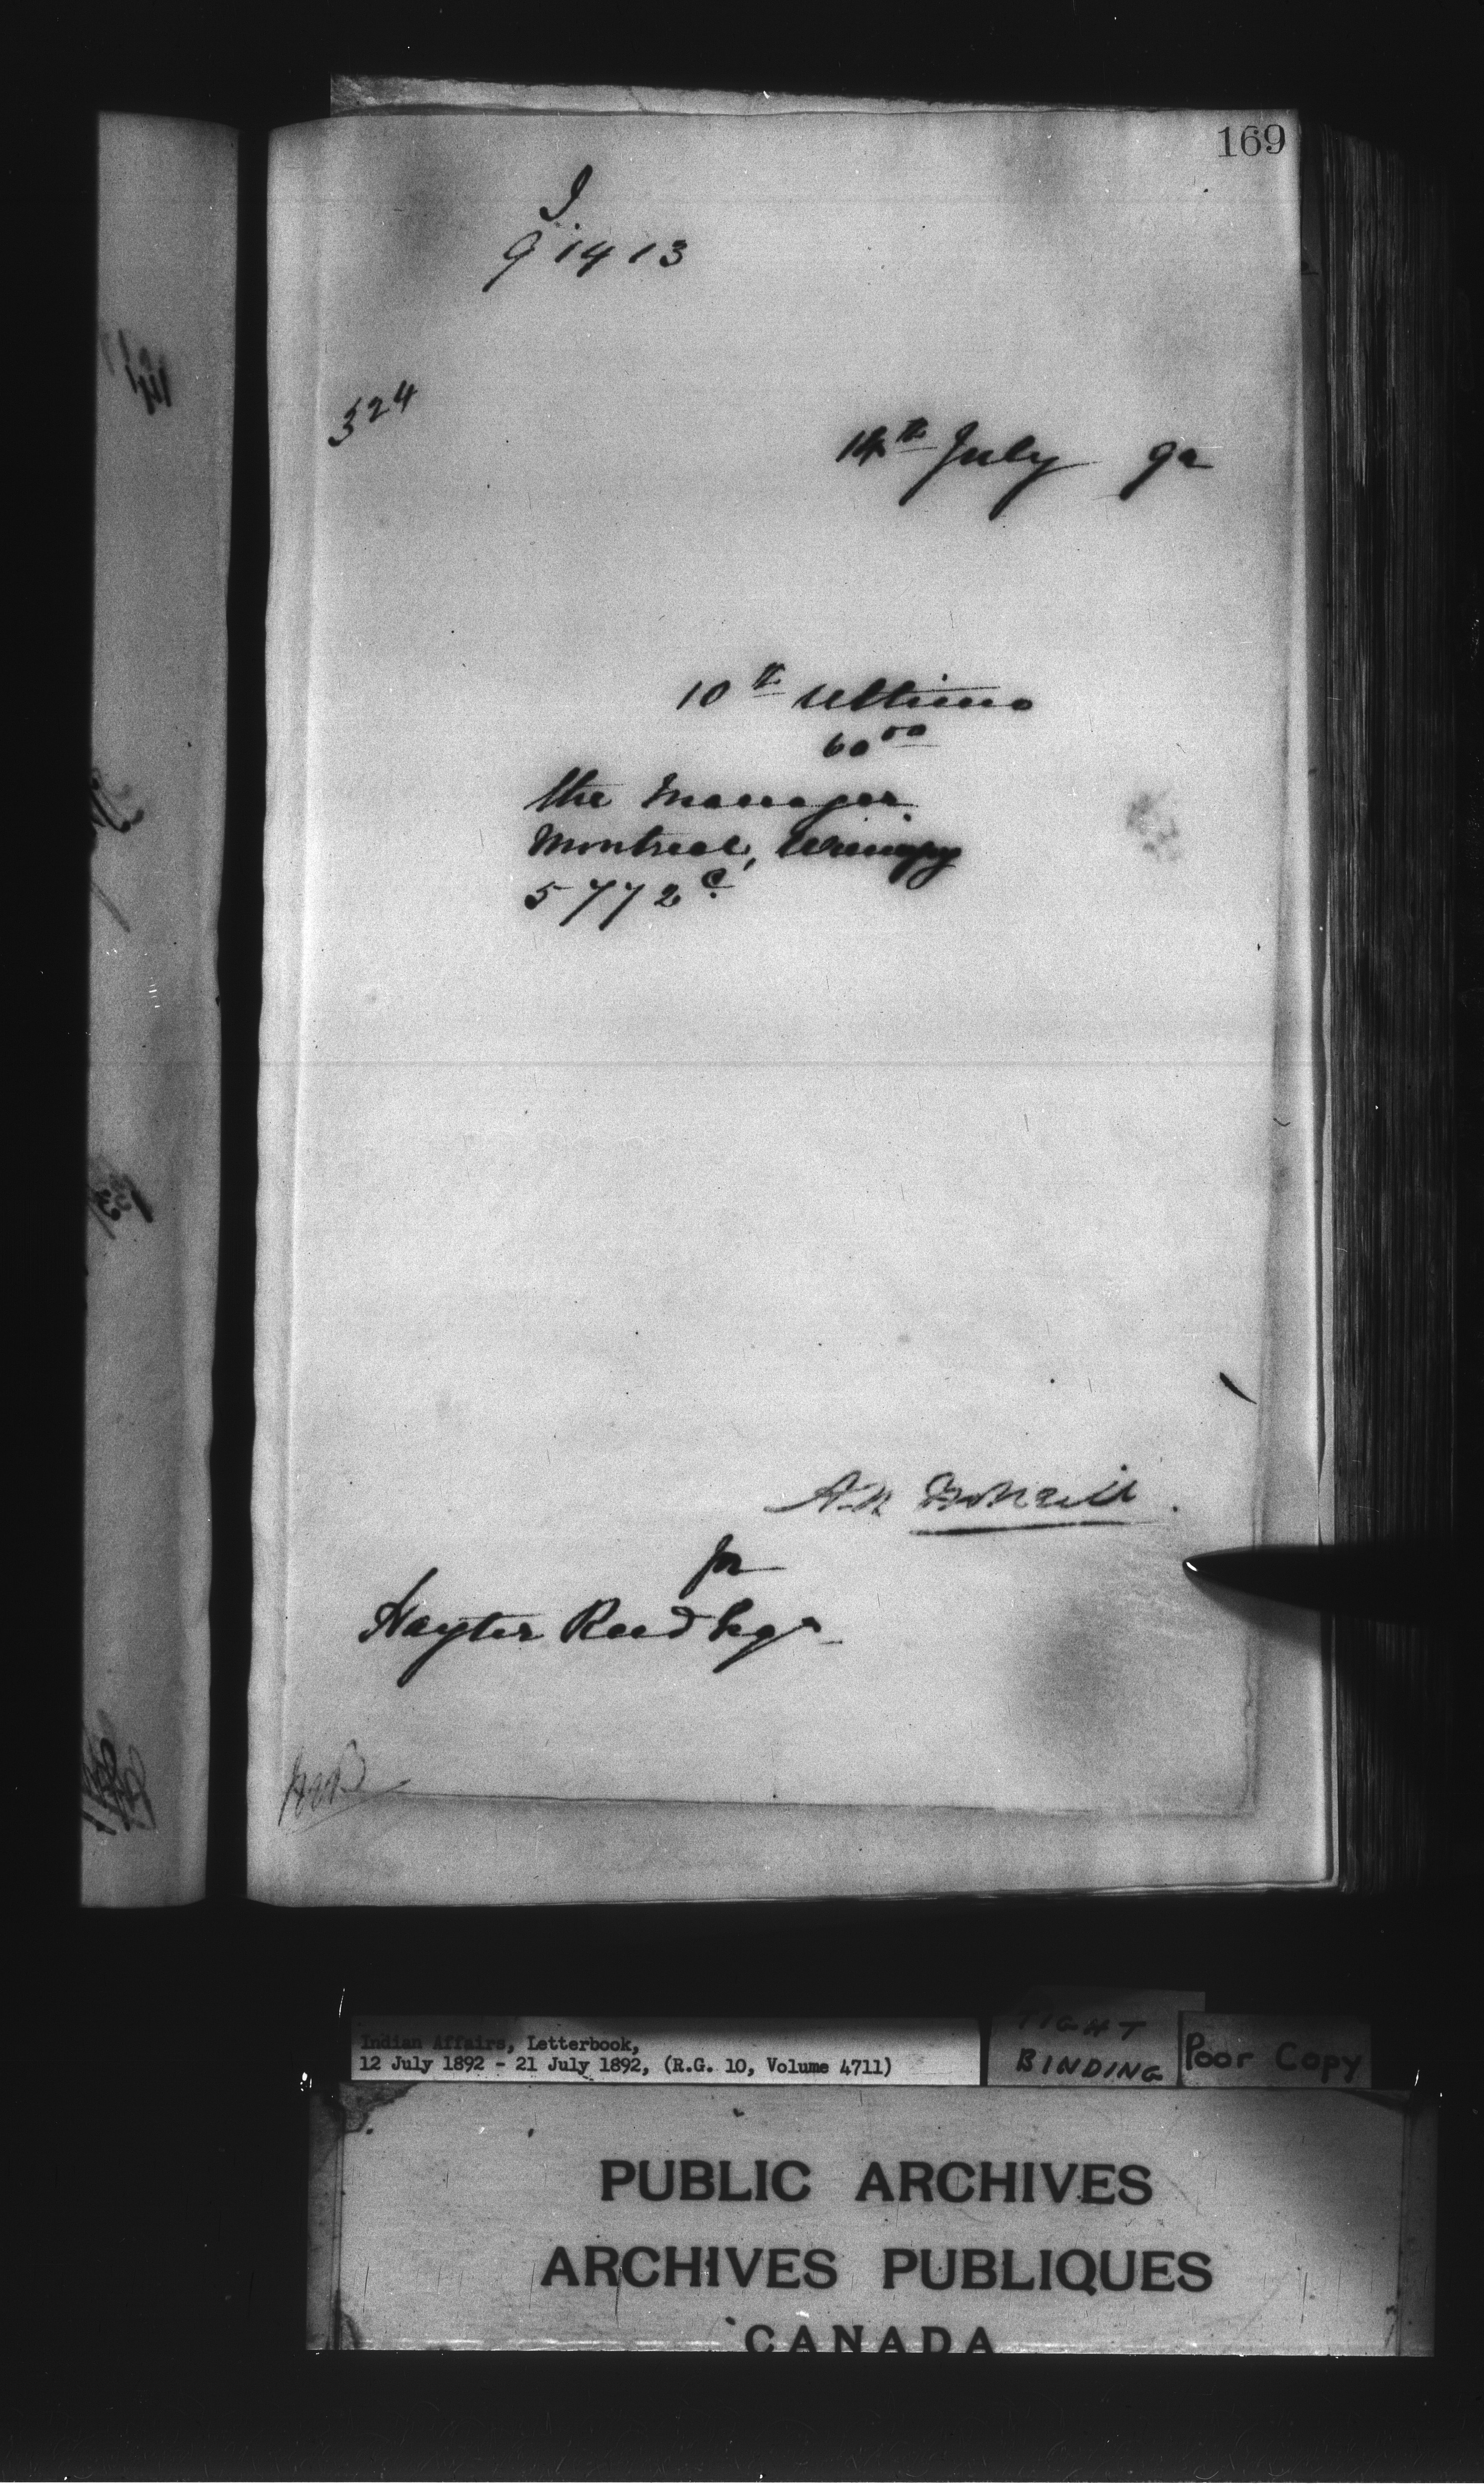 169
J
91413
324
14th July 92
10th Ultimo
60 00
the Manager
Montreal, Winnipeg
5772 c.
for
Hayter Reed Esqr
Indian Affairs, Letterbook,
12 July 1892 - 21 July 1892, (R.G. 10, Volume 4711)
TIGHT
BINDING
Poor Copy
PUBLIC ARCHIVES
ARCHIVES PUBLIQUES
CANADA